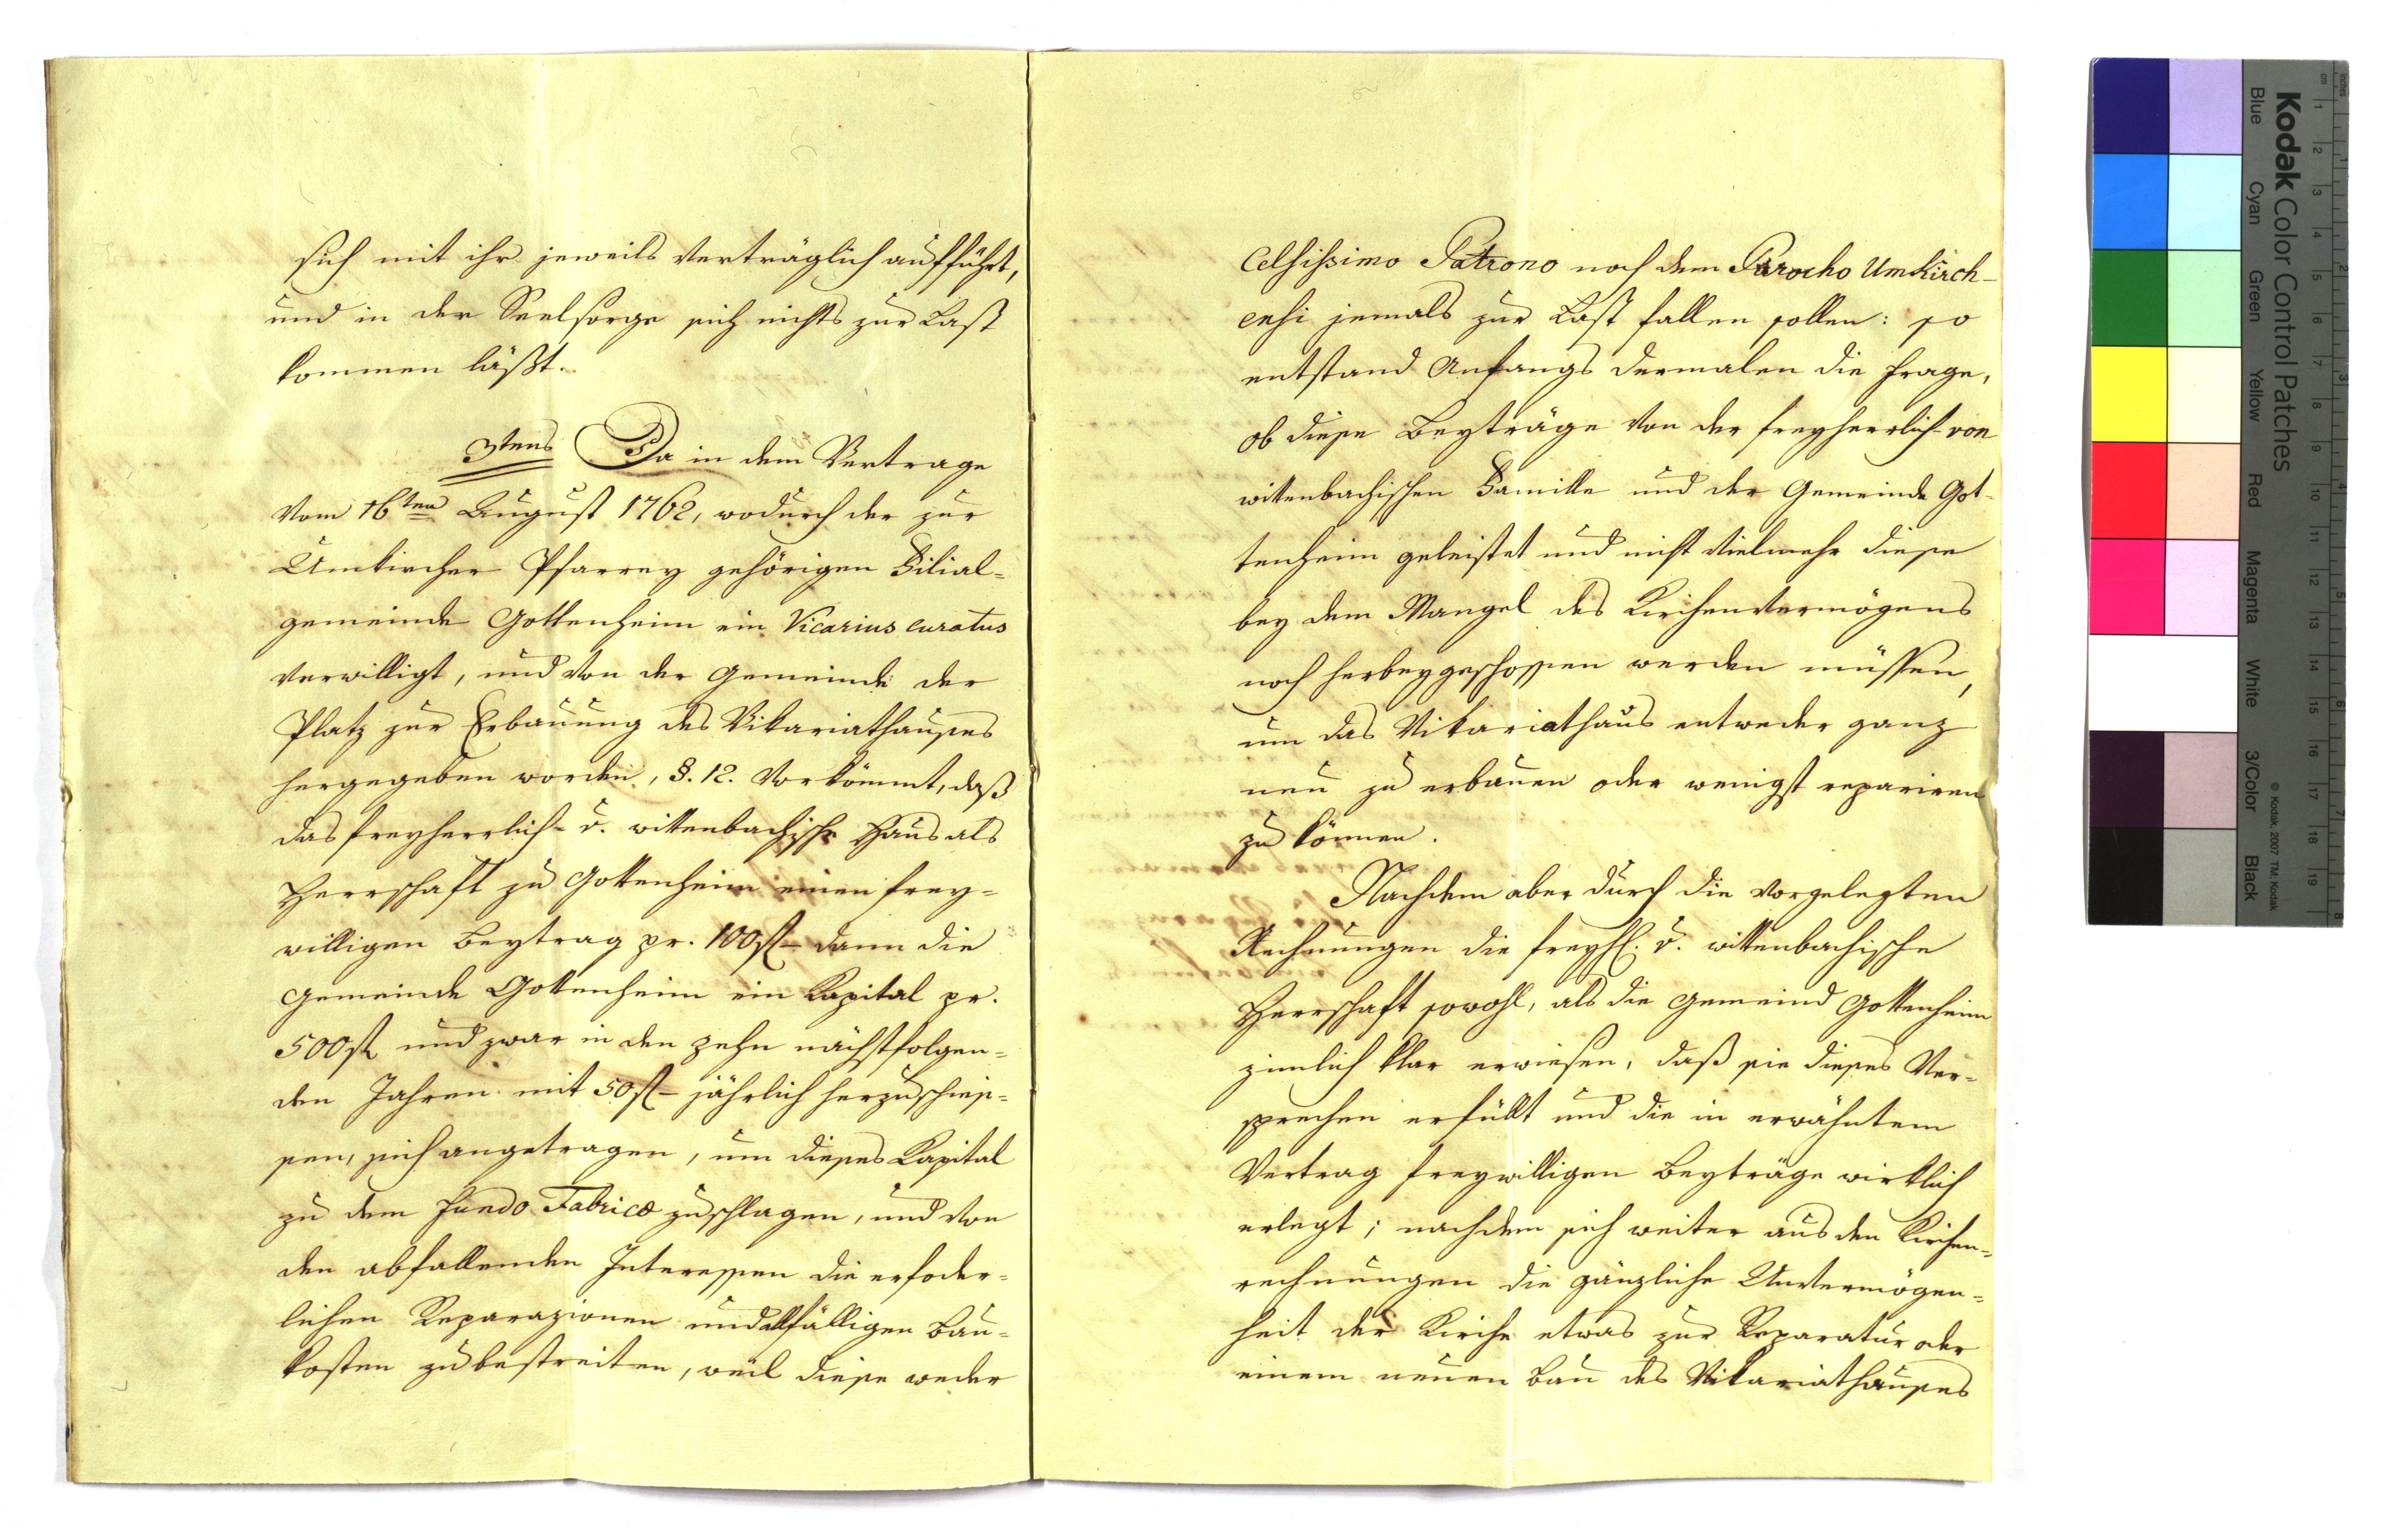 sich mit ihr jeweils verträglich aufführt,
und in der Seelsorge sich nichts zur Last
kommen läßt.
3tens Da in dem Vertrage
vom 16ten August 1762, wodurch der zur
Umkircher Pfarrey gehörigen Filial-
gemeinde Gottenheim ein Vicarius curatus
verwilligt, und von der Gemeinde der
Platz zur Erbauung des Vikariathauses
hergegeben worden, §. 12. vorkömmt, daß
das freyherrlich- v. wittenbachische Haus als
Herrschaft zu Gottenheim einen frey-
willigen Beytrag pr. 100 fl – dann die
Gemeinde Gottenheim ein Kapital pr.
500 fl und zwar in den zehn nächstfolgen-
den Jahren mit 50 fl – jährlich herzuschies-
sen, sich angetragen, um dieses Kapital
zu dem fundo Fabricæ zuschlagen, und von
den abfallenden Interessen die erfoder-
lichen Reparazionen und allfälligen Bau-
kosten zu bestreiten, weil diese weder
Celsissimo Patrono noch dem Parocho Umkirch-
ensi jemals zur Last fallen sollen: so
entstand Anfangs dermalen die Frage,
ob diese Beyträge von der freyherrlich von
wittenbachischen Familie und der Gemeinde Got-
tenheim geleistet und nicht vielmehr diese
bey dem Mangel des Kirchenvermögens
noch herbeygeschossen werden müssen,
um das Vikariathaus entweder ganz
neu zu erbauen oder wenigst repariren
zu können.
Nachdem aber durch die vorgelegten
Rechnungen die freyhl. v. wittenbachische
Herrschaft sowohl, als die Gemeind Gottenheim
zimlich klar erwiesen, daß sie dieses Ver-
sprechen erfüllt und die in erwähntem
Vertrag freywilligen Beyträge wirklich
erlegt; nachdem sich weiter aus den Kirchen-
rechnungen die gänzliche Unvermögen-
heit der Kirche etwas zur Reparatur oder
einem neuen Bau des Vikariathauses
Kodak Color Control Patches
Blue Cyan Green Yellow Red Magenta White 3/Color Black
© Kodak, 2007 TM: Kodak
cm 1 2 3 4 5 6 7 8 9 10 11 12 13 14 15 16 17 18 19
inches 1 2 3 4 5 6 7 8